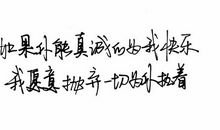 如果你能真诚的为我快乐
我愿意抛弃一切为你执着